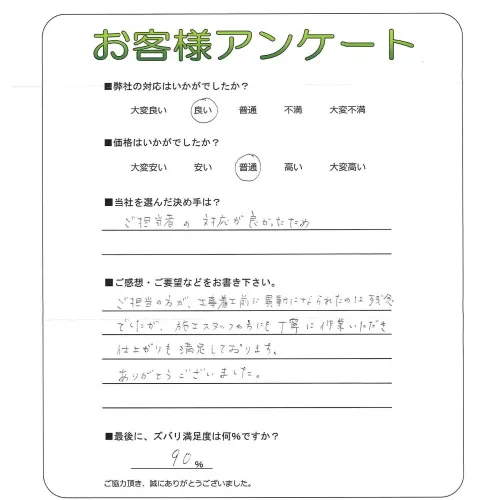 お客様アンケート
■弊社の対応はいかがでしたか？
大変良い 良い 普通 不満 大変不満
■価格はいかがでしたか？
大変安い 安い 普通 高い 大変高い
■当社を選んだ決め手は？
ご担当者の対応が良かったため
■ご感想・ご要望などをお書き下さい。
ご担当の方が、工事着工前に異動になられたのは残念
でしたが、施工スタッフの方にも丁寧に作業いただき
仕上がりも満足しております。
ありがとうございました。
■最後に、ズバリ満足度は何％ですか？
90％
ご協力頂き、誠にありがとうございました。